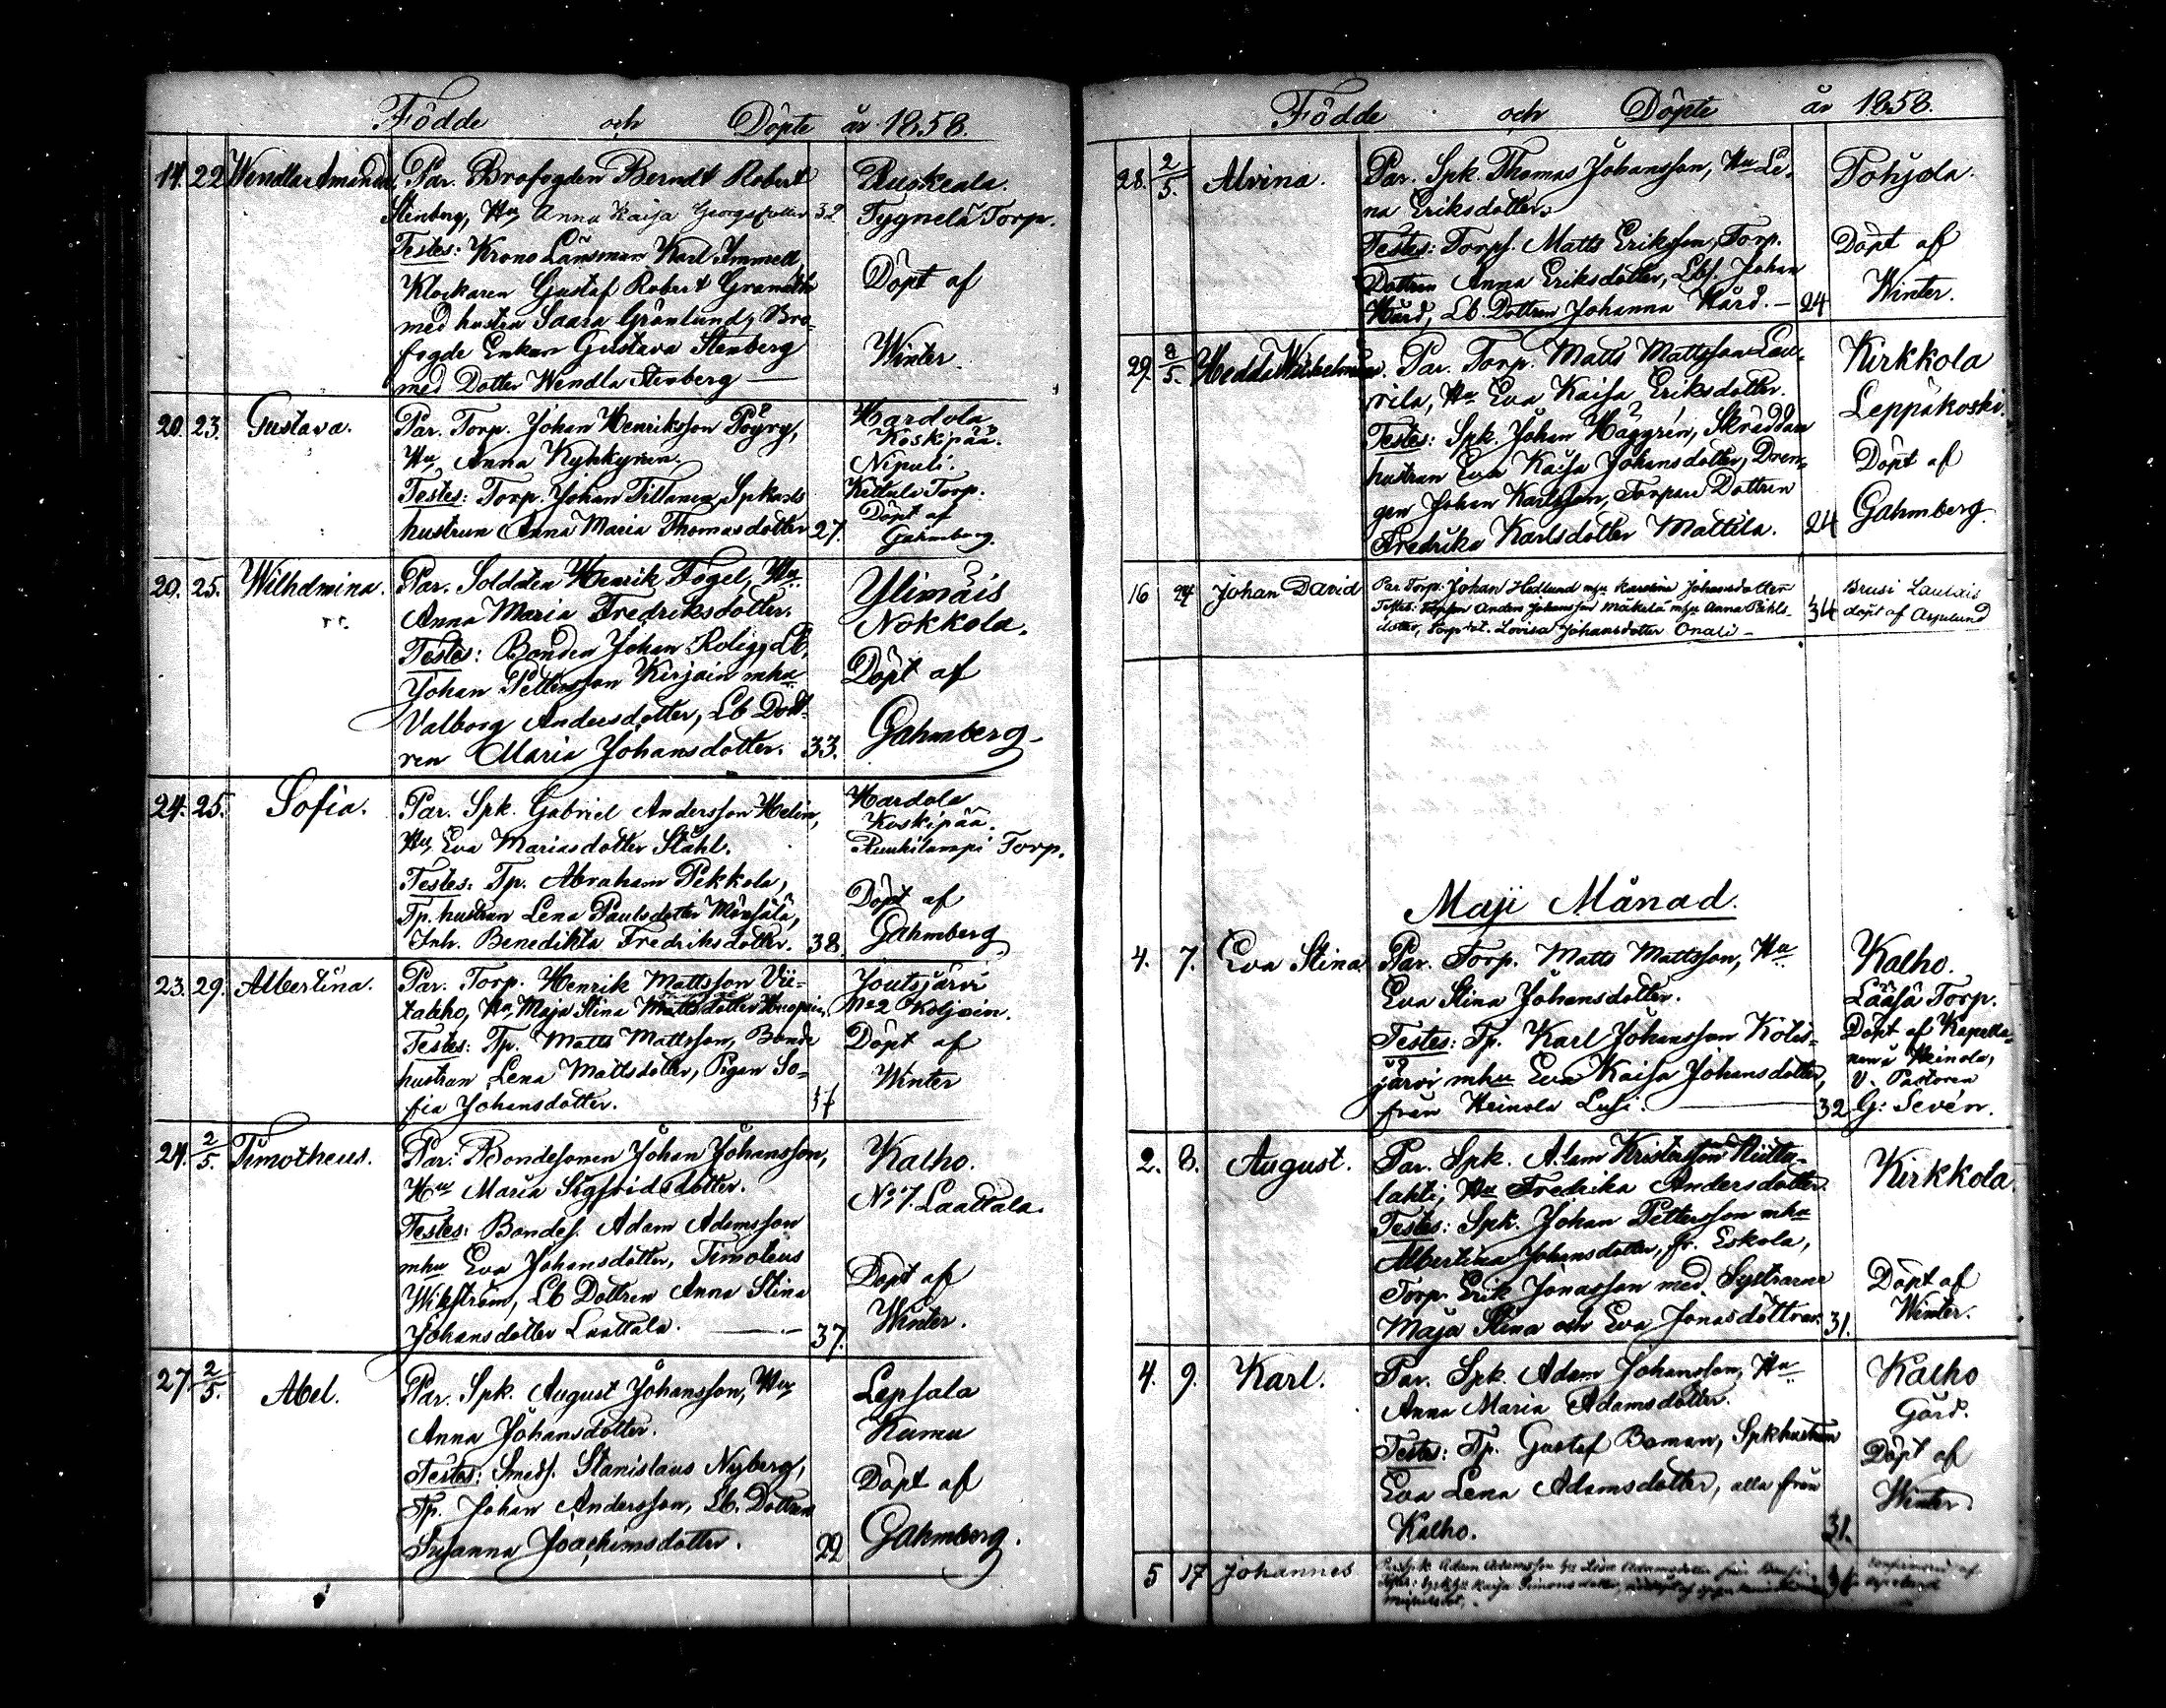 Födde och Döpte år 1858.
14. 22 Wendla Amanda. Par. Brofogden Berndt Robert Ruskeala.
Stenberg, Hu, Anna Kaisa Georgsdotter 32 Tygnelä Torp.
Testes: Krono Länsman Karl Ammell,
Klockaren Gustaf Robert Döpt af
med hustru Saara Grönlund, Bro-
fogde Enkan Gustava Stenberg Winter.
med Dotter Wendla Stenberg —
20. 23. Gustava. Par. Torp. Johan Henriksson Pöyry, Hardola
Hu, Anna Kyhkynen. Koskipää.
Nipuli.
Testes: Torp. Johan Tillanen, Spkarls Kettula Torp.
hustrun Anna Maria Thomasdotter 27. Döpt af
Gahmberg.
20. 25. Wilhelmina. Par. Soldaten Henrik Fogel, Hu Ylimäis
Anna Maria Fredriksdotter. Nokkola.
Testes: Bonden Johan Rolig, Lb,
Johan Pettersson Kirjain mhu Döpt af
Valborg Andersdotter, Lb Dott-
ren Maria Johansdotter. 33. Gahmberg
24. 25. Sofia. Par. Spk. Gabriel Andersson Helin, Hardola
Hu, Eva Mariasdotter Ståhl. Koskipää.
Ruuhilampi Torp.
Testes: Tp. Abraham Pekkola,
Tp. hustrun Lena Paulsdotter Mänsälä, Döpt af
Inh. Benedikta Fredriksdotter. 38. Gahmberg
23. 29. Albertina. Par. Torp. Henrik Mattsson Vii- Joutsjärvi
takko, Hu, Maja Stina No 2 Koljoin.
Testes: Tp. Matts Mattsson, Bonde Döpt af
hustrun Lena Mattsdotter, Pigan So- Winter
fia Johansdotter. 37
24. 2/5. Timotheus. Par. Bondesonen Johan Johansson, Kalho.
Hu Maria Sigfridsdotter. No 7. Laattala.
Testes: Bondes. Adam Adamsson
mhu Eva Johansdotter, Timoteus
Wikström, Lb Dottren Anna Stina Döpt af
Johansdotter Laattala. — 37. Winter.
27 2/5. Abel. Par. Spk. August Johansson, Hu Lepsala
Anna Johansdotter. Kumu
Testes: Smeds. Stanislaus Nyberg, Döpt af
Tp. Johan Andersson, Lb. Dottren
Susanna Joachimsdotter. 22 Gahmberg.
Födde och Döpte år 1858.
28. 2/5. Alvina. Par. Spk. Thomas Johansson, Hu Le- Pohjola.
na Eriksdotter.
Testes: Torps. Matts Eriksson, Torp. Döpt af
Dottren Anna Eriksdotter, Lbs. Johan
Hård, Lb Dottren Johanna Hård. — 24 Winter.
29. 2/5. Hedda Wilhelmina. Par. Torp. Matts Mattsson Lau- Kirkkola
rila, Hu Eva Kaisa Eriksdotter. Leppäkoski.
Testes: Spk. Johan Häggrén, Skräddare
hustrun Eva Kaisa Johansdotter, Dren- Döpt af
gen Johan Karlsson, Torpare Dottren
Fredrika Karlsdotter Mattila. 24 Gahmberg
16 24 Johan David Par Torp. Johan Hedlund mhu Karolina Johansdotter Brusi Laulais
Testes: Anders Johansson Mäkelä mhu Anna 34 döpt af Asplund
dotter, Torp dot. Lovisa Johansdotter Onali —
Maji Månad.
4. 7. Eva Stina Par. Torp. Matts Mattsson, Hu Kalho.
Eva Stina Johansdotter. Laasä Torp.
Testes: Tp. Karl Johansson Kotis- Döpt af Kapella-
järvi mhu Eva Kaisa Johansdotter, nen i Heinola,
V. Pastoren
från Heinola Lusi. — 32 G: Sevén.
2. 8. August. Par. Spk. Adam Kristersson Niitty- Kirkkola.
lahti, Hu Fredrika Andersdotter.
Testes: Spk. Johan Pettersson mhu
Albertina Johansdotter, fr. Eskola,
Torp. Erik Jonasson med Systrarne Döpt af
Maja Stina och Eva Jonasdöttrar. 31. Winter.
4. 9. Karl. Par. Spk. Adam Johansson, Hu Kalho
Anna Maria Adamsdotter. Gård.
Testes: Tp. Gustaf Boman, Spkhustrun Döpt af
Eva Lena Adamsdotter, alla från Winter
Kalho. 31.
5 17 Johannes Par. Spk. Adam Adamsson hu Lena Adamsdotter från
Testes: Kaisa Simonsdotter,